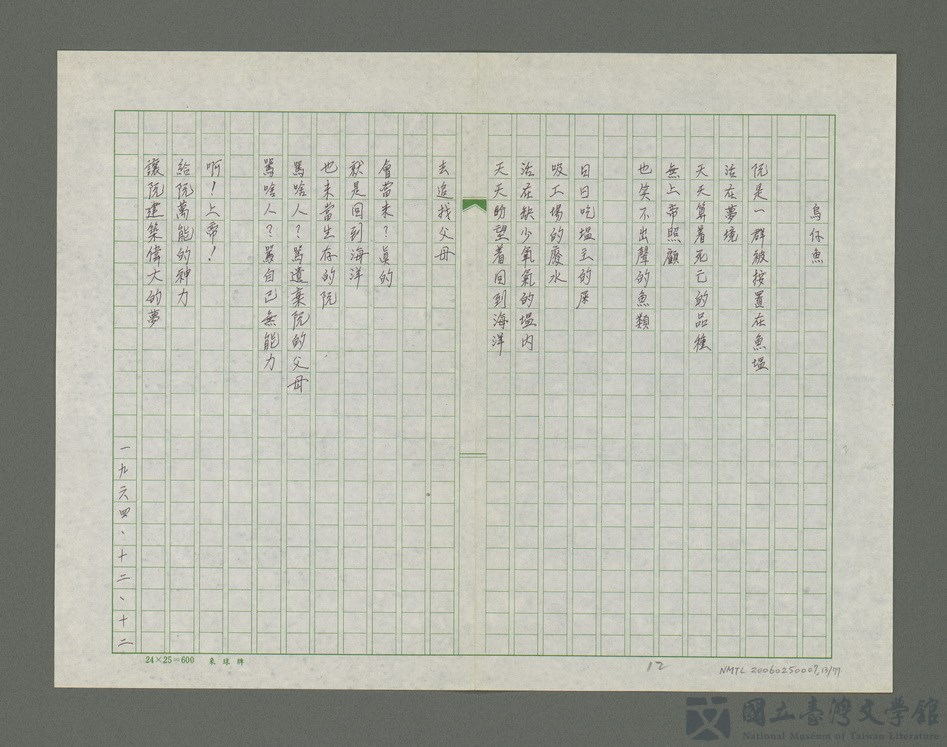 烏仔魚
阮是一群被按置在魚塭
活在夢境
天天算着死亡的品種
無上帝照顧
也笑不出聲的魚類
日日吃塭主的屎
吸工場的廢水
活在缺少氧氣的塭內
天天盼望着回到海洋
去追找父母
會當未？真的
就是回到海洋
也未當生存的阮
罵啥人？罵遺棄阮的父母
罵啥人？罵自己無能力
啊！上帝！
給阮萬能的神力
讓阮建築偉大的夢
一九六四、十二、十二
24×25=600
12
NMTL 20060250007, 13/77
國立臺灣文學館
National Museum of Taiwan Literature